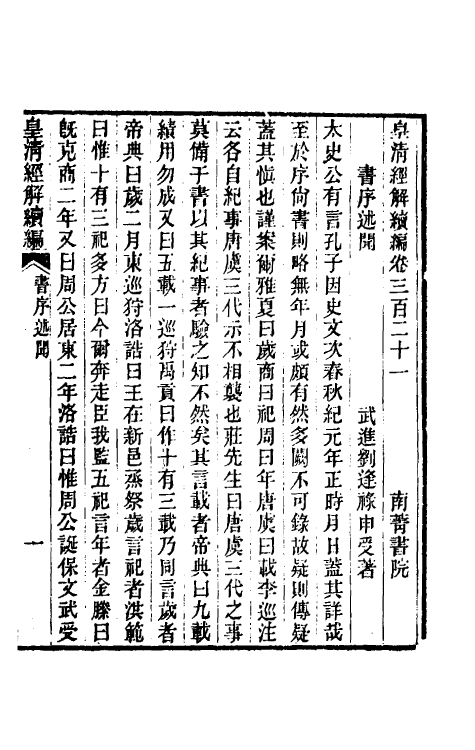 皇清經解續編卷三百二十一
南菁書院
書序述聞
武進劉逢祿申受著
太史公有言孔子因史文次春秋紀元年正時月日蓋其詳哉
至於序尙書則略無年月或頗有然多闕不可錄故疑則傳疑
蓋其愼也謹案爾雅夏曰歲商曰祀周曰年唐虞曰載李巡注
云各自紀事唐虞三代示不相襲也莊先生曰唐虞三代之事
莫備于書以其紀事者驗之知不然矣其言載者帝典曰九載
績用勿成又曰五載一巡狩禹貢曰作十有三載乃同言歲者
帝典曰歲二月東巡狩洛誥曰王在新邑蒸祭歲言祀者洪範
曰惟十有三祀多方曰今爾奔走臣我監五祀言年者金縢曰
旣克商二年又曰周公居東二年洛誥曰惟周公誕保文武受
皇清經解續編
書序述聞
一